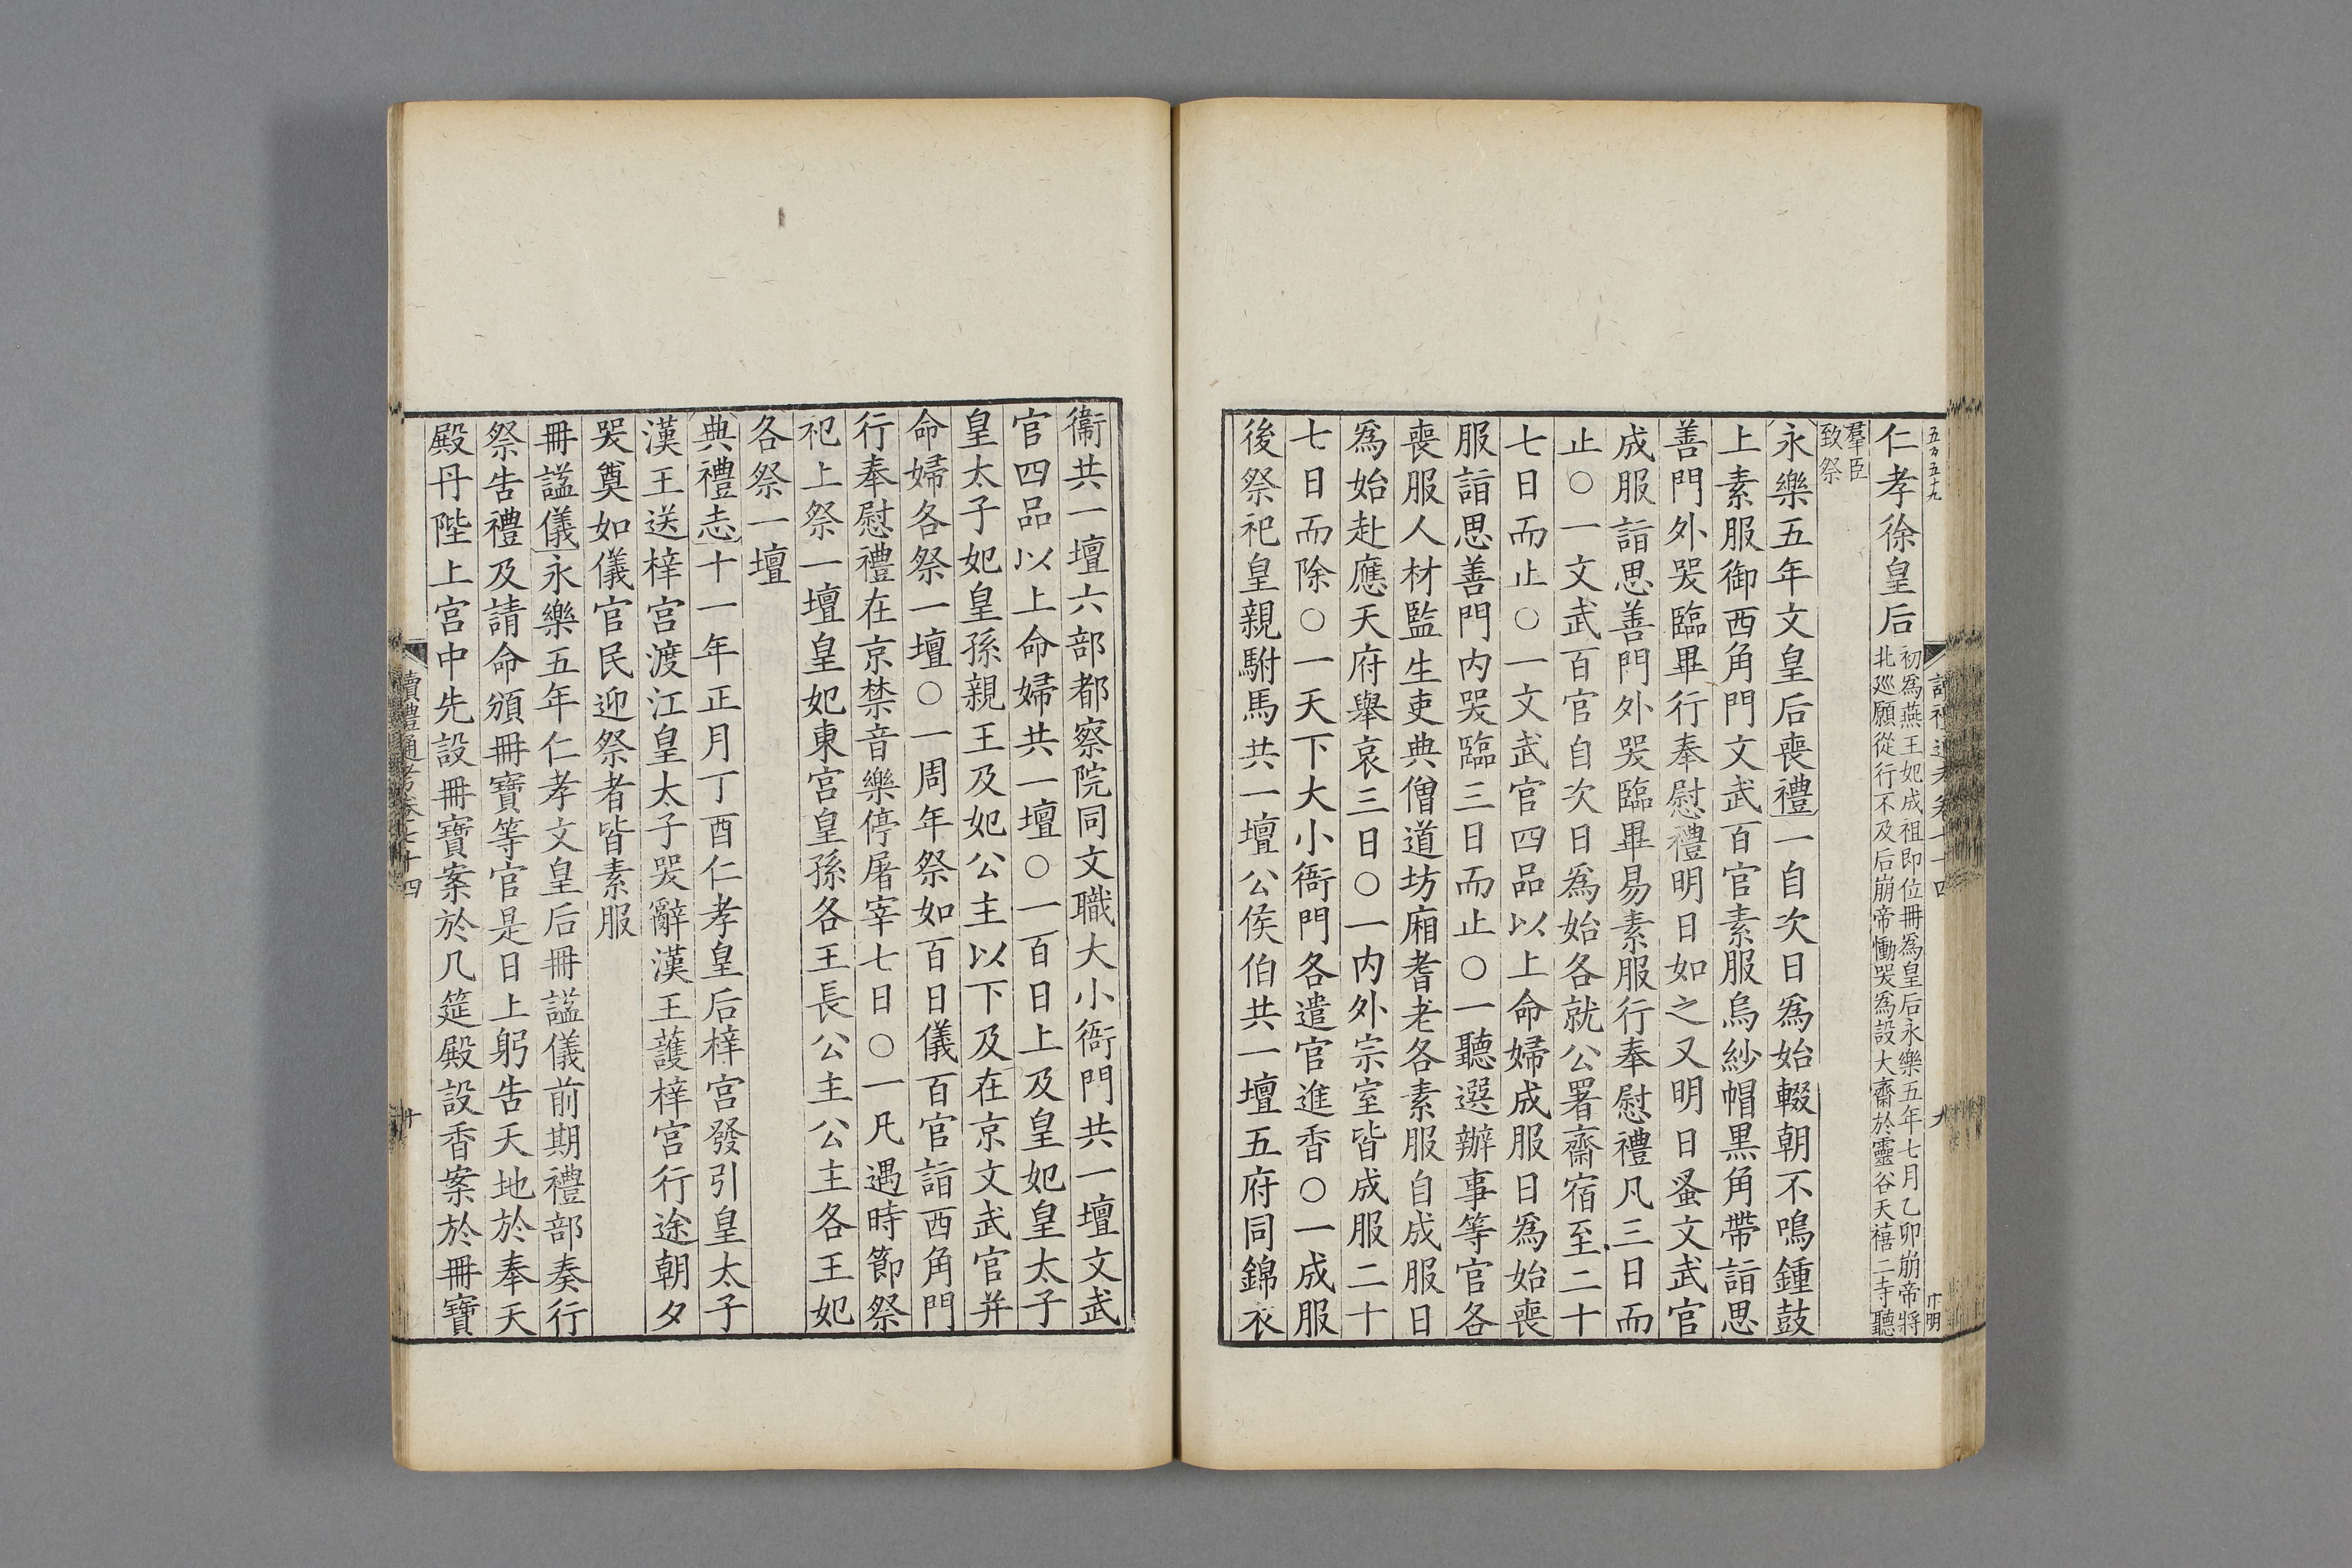 仁孝徐皇后初爲燕王妃成祖即位冊爲皇后永樂五年七月乙卯崩帝將
北廵願從行不及后崩帝慟哭爲設大齋於靈谷天禧二寺聽
羣臣
致祭
永樂五年文皇后喪禮一自次日爲始輟朝不鳴鍾鼓
上素服御西角門文武百官素服烏紗帽黑角帶詣思
善門外哭臨畢行奉慰禮明日如之又明日蚤文武官
成服詣思善門外哭臨畢易素服行奉慰禮凡三日而
止○一文武百官自次日爲始各就公署齋宿至二十
七日而止○一文武官四品以上命婦成服日爲始喪
服詣思善門内哭臨三日而止○一聽選辦事等官各
喪服人材監生吏典僧道坊廂耆老各素服自成服日
爲始赴應天府舉哀三日○一内外宗室皆成服二十
七日而除○一天下大小衙門各遣官進香○一成服
後祭祀皇親駙馬共一壇公侯伯共一壇五府同錦衣
衞共一壇六部都察院同文職大小衙門共一壇文武
官四品以上命婦共一壇○一百日上及皇妃皇太子
皇太子妃皇孫親王及妃公主以下及在京文武官并
命婦各祭一壇○一周年祭如百日儀百官詣西角門
行奉慰禮在京禁音樂停屠宰七日○一凡遇時節祭
祀上祭一壇皇妃東宮皇孫各王長公主公主各王妃
各祭一壇
典禮志十一年正月丁酉仁孝皇后梓宮發引皇太子
漢王送梓宮渡江皇太子哭辭漢王護梓宮行途朝夕
哭奠如儀官民迎祭者皆素服
冊謚儀永樂五年仁孝文皇后冊謚儀前期禮部奏行
祭告禮及請命頒冊寶等官是日上躬告天地於奉天
殿丹陛上宮中先設冊寶案於几筵殿設香案於冊寶
讀禮通考卷七十四